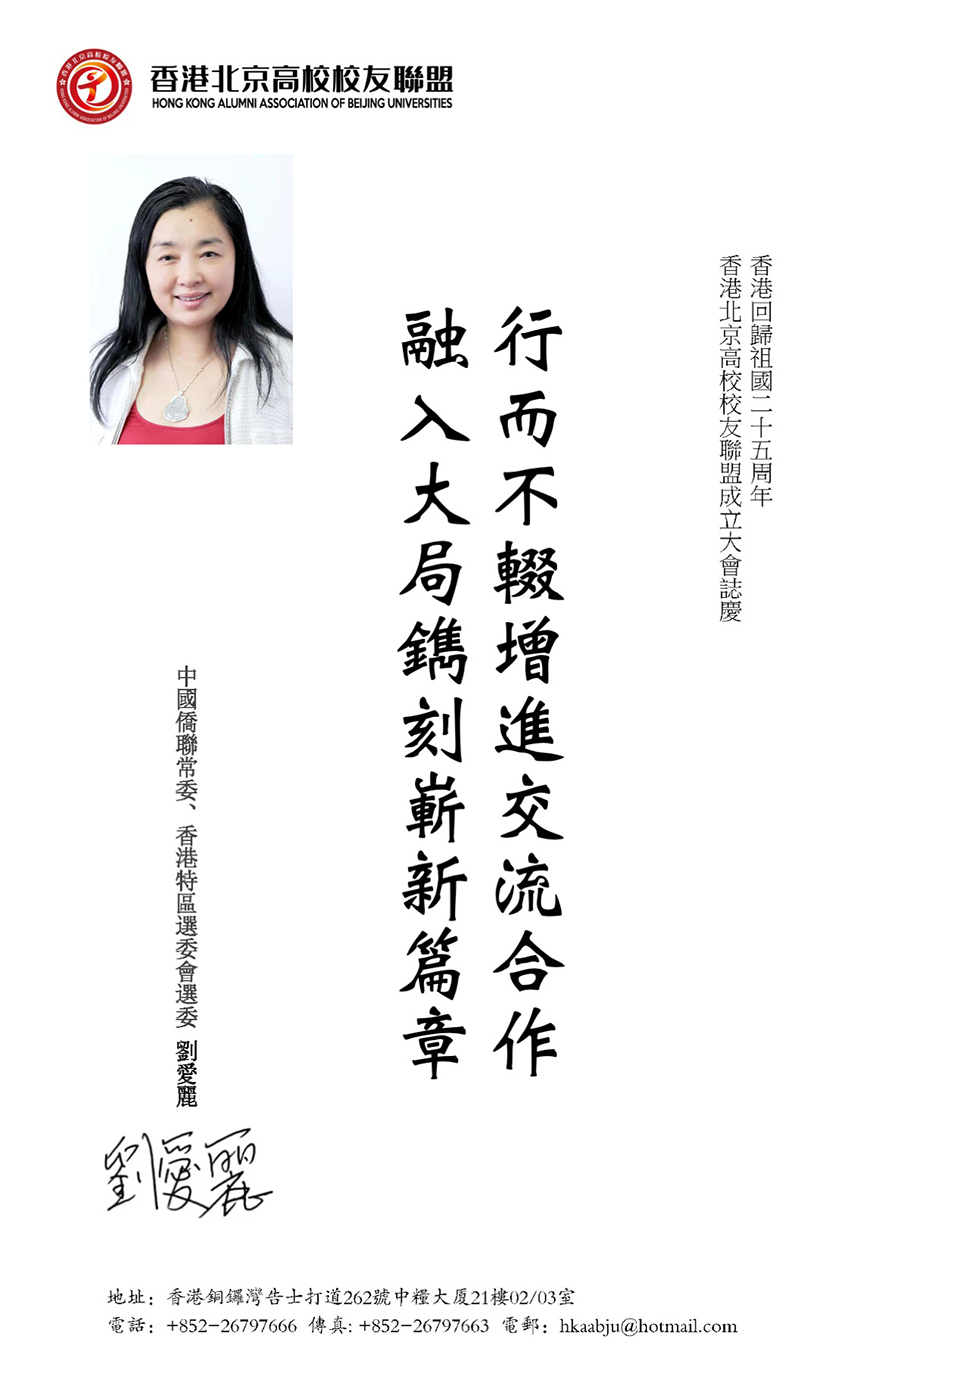 香港北京高校校友聯盟
HONG KONG ALUMNI ASSOCIATION OF BEIJING UNIVERSITIES
香港回歸祖國二十五周年
香港北京高校校友聯盟成立大會誌慶
行而不輟增進交流合作
融入大局鐫刻嶄新篇章
中國僑聯常委、香港特區選委會選委 劉愛麗
劉愛麗
地址：香港銅鑼灣告士打道262號中糧大厦21樓02/03室
電話：+852-26797666 傳真: +852-26797663 電郵：hkaabju@hotmail.com